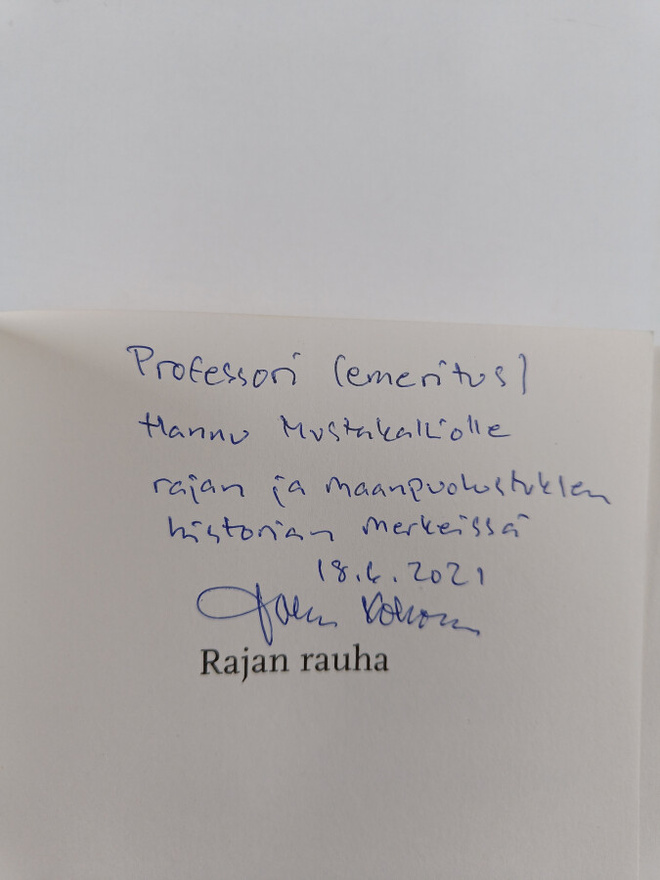 Professori (emeritus)
Hannu Mustakalliolle
rajan ja maanpuolustuksen
historian merkeissä
18.6.2021
Rajan rauha